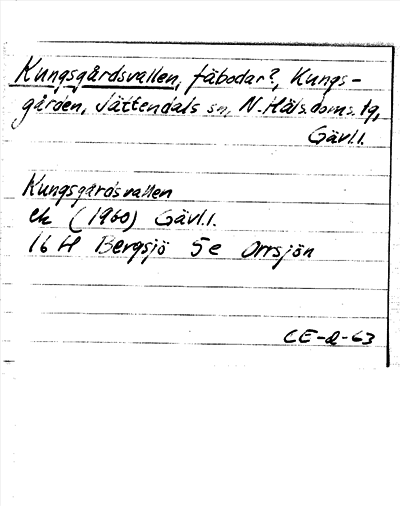 Kungsgårdsvallen, fäbodar?, Kungs-
gården, Jättendals sn, N. Häls. doms. lq,
Gävl.l.
Kungsgårdsvallen
ek (1960) Gävl.l.
16 H Bergsjö 5e Orrsjön
CE-a-63